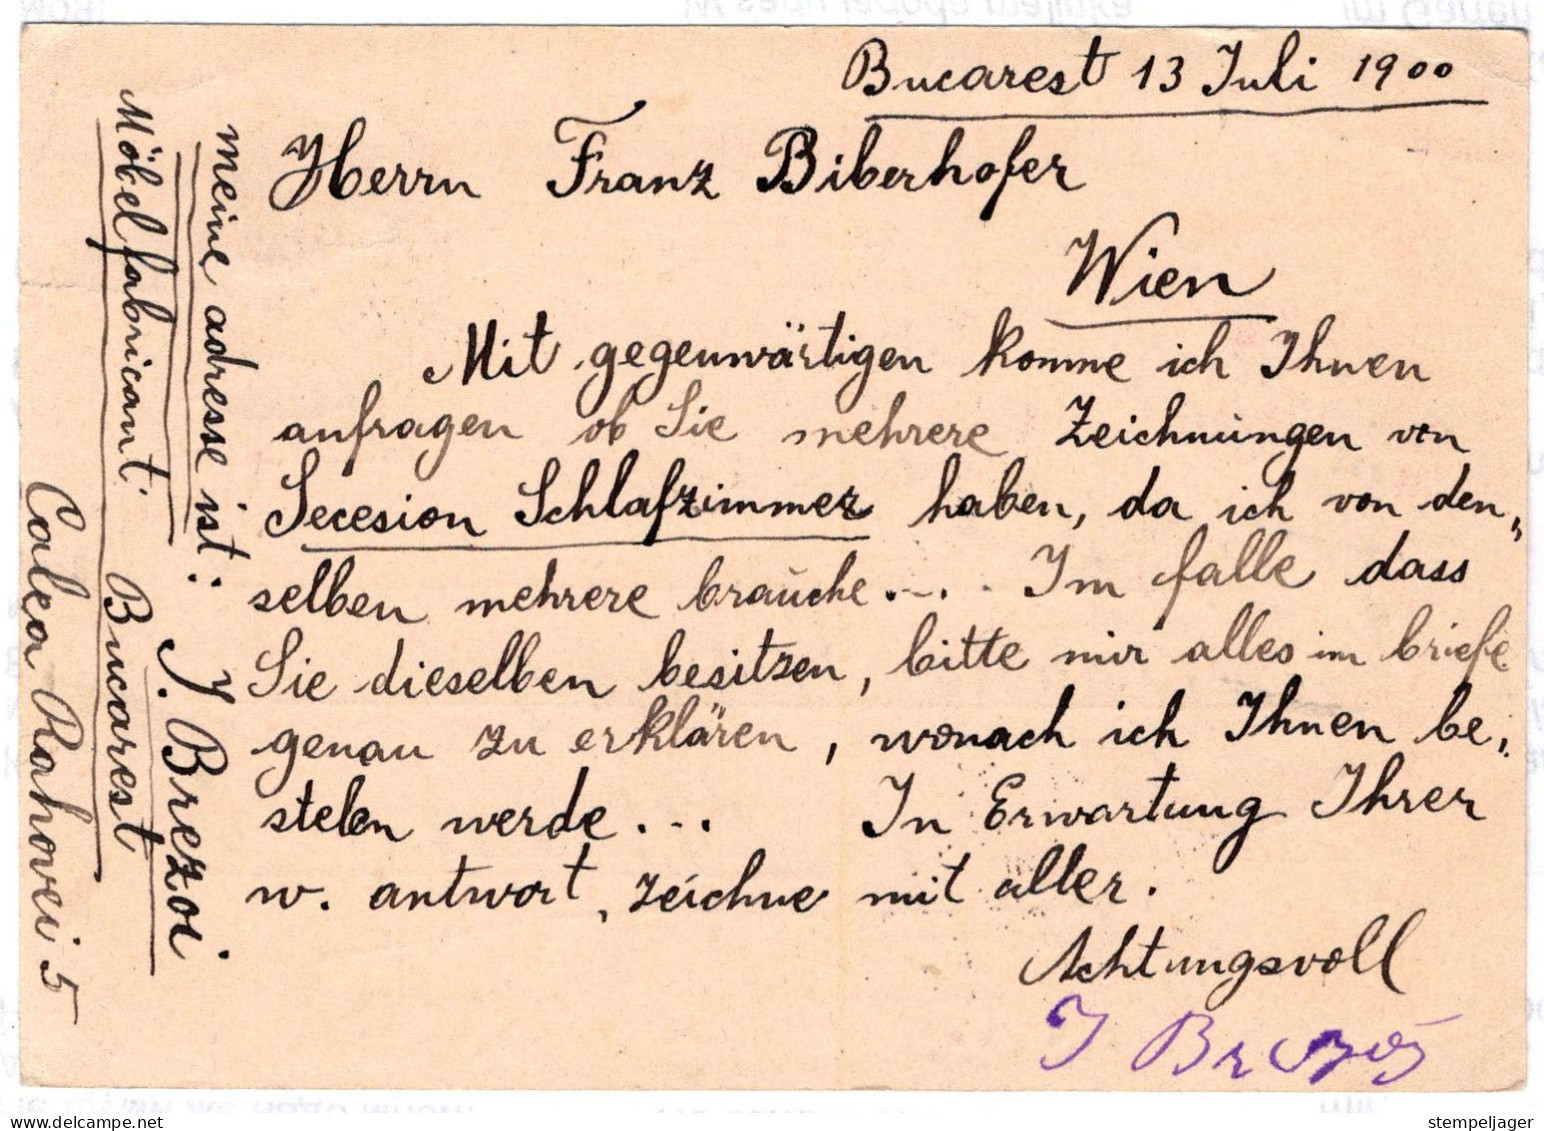 Bucarest 13 Juli 1900
Herrn Franz Biberhofer
Wien
Mit gegenwärtigen komme ich Ihnen
anfragen ob Sie mehrere Zeichnungen von
Secesion Schlafzimmer haben, da ich von den„
selben mehrere brauche.... Im falle dass
Sie dieselben besitzen, bitte mir alles im briefe
genau zu erklären, wonach ich Ihnen be„
stelen werde... In Erwartung Ihrer
w. antwort, zeichne mit aller.
Achtungsvoll
J Brezoi
meine adresse ist: J. Brezoi
Möbelfabricant. Bucarest
Calea Rahovei 5
stempeljager